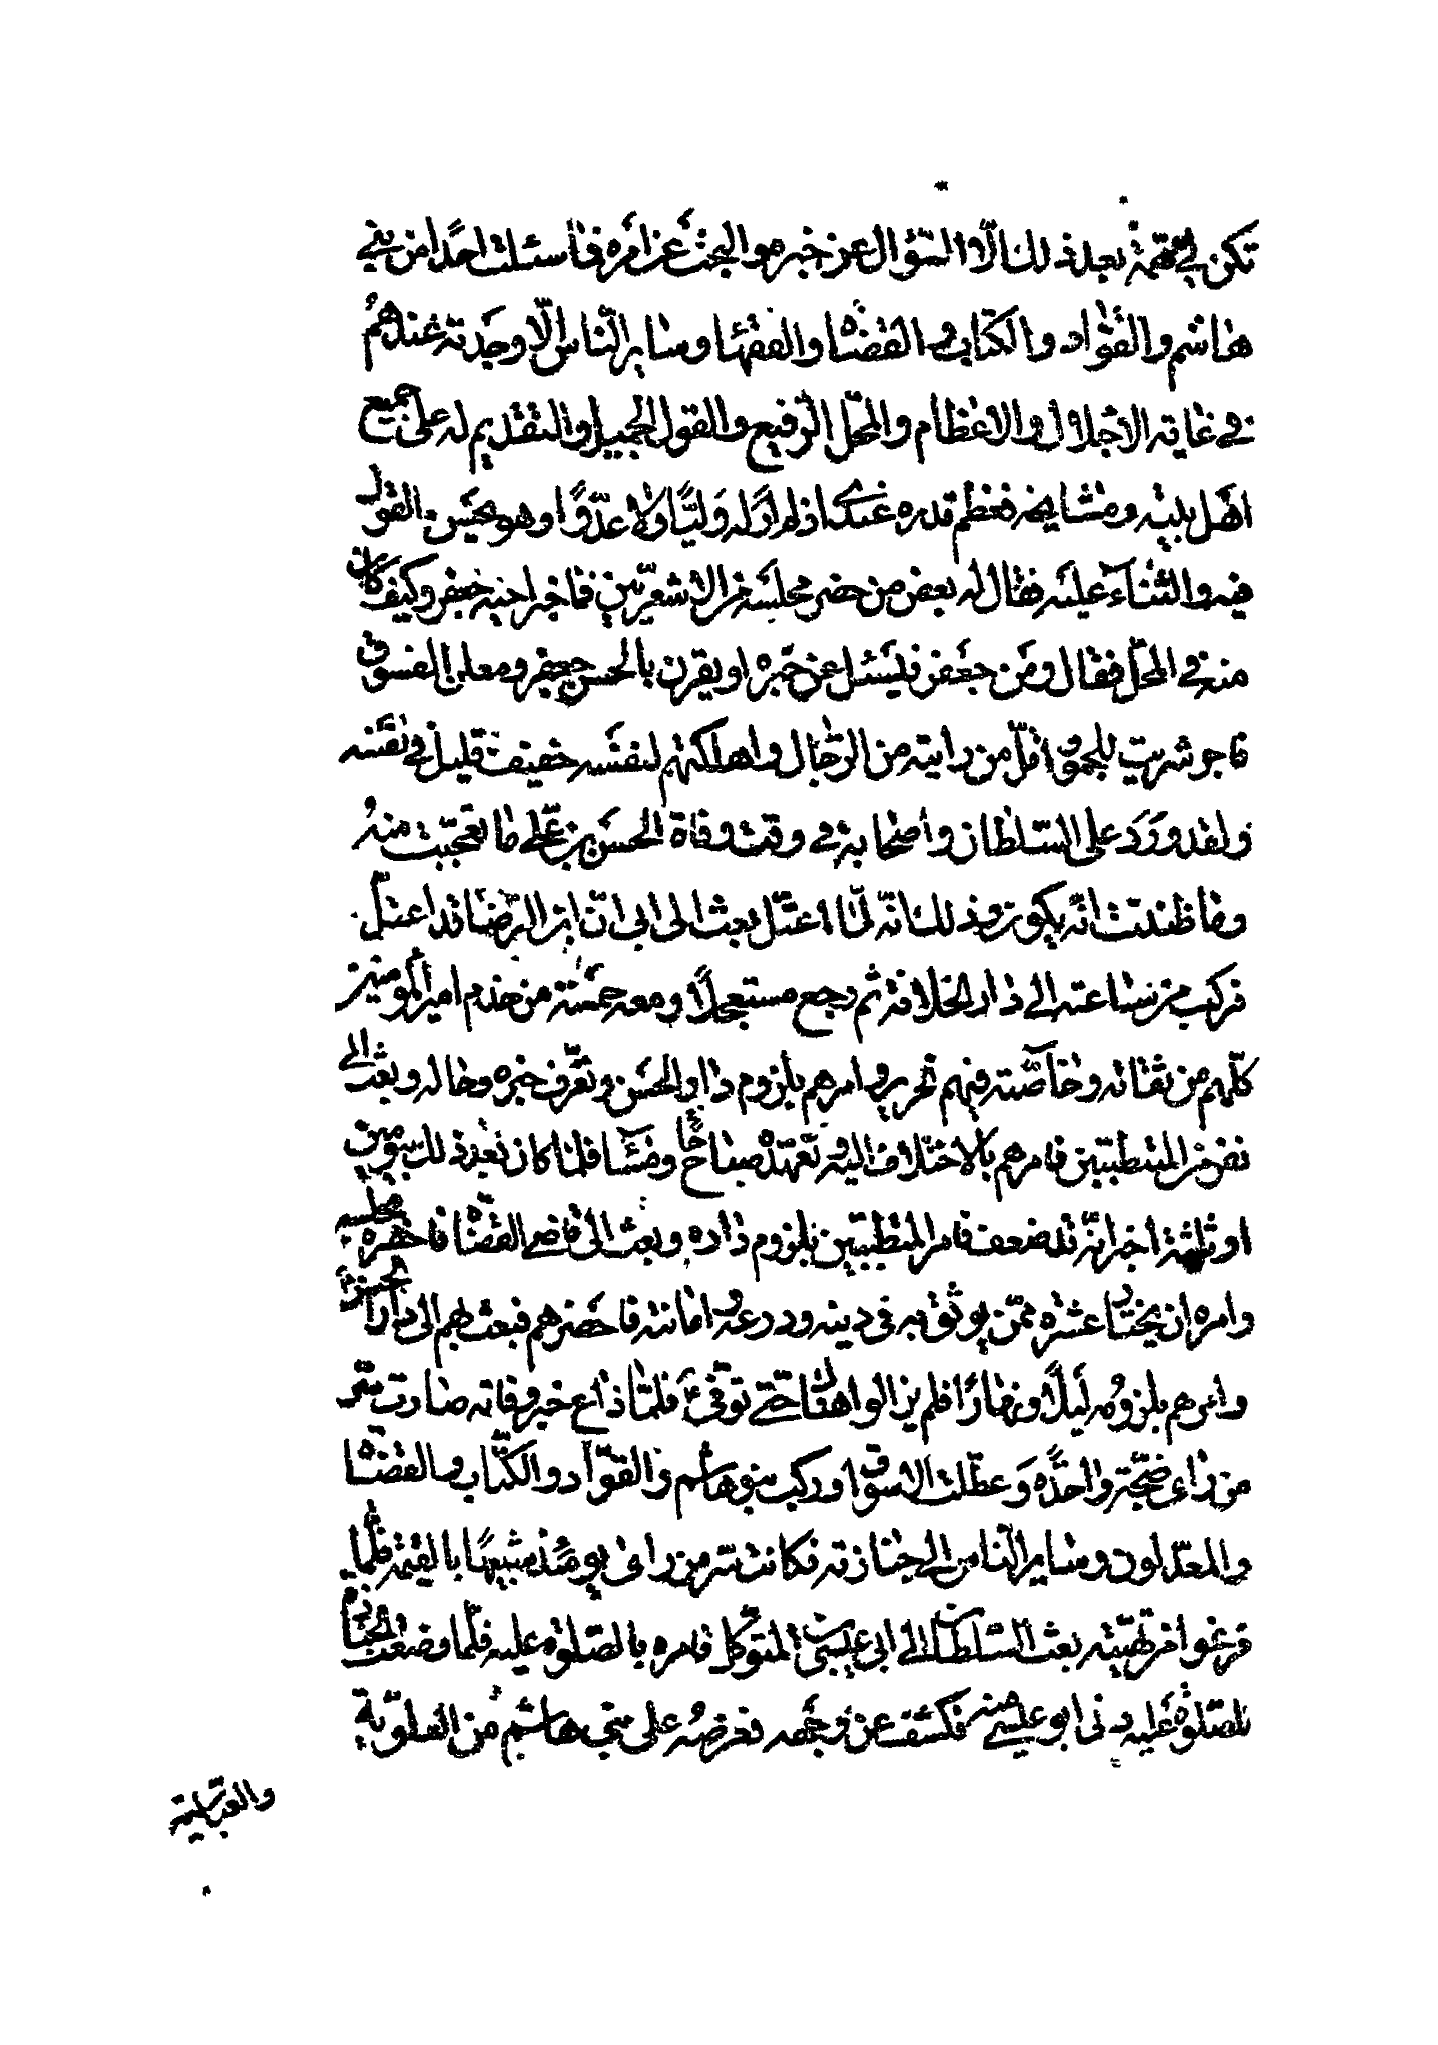 تكن لي همّة بعد ذلك الّا السّؤال عن خبره والبحث عن امره فما سئلت احدًا من بني
هاشم والقوّاد والكتّاب والقضاة والفقهاء وساير النّاس الّا وجدته عندهم
في غاية الاجلال والاعظام والمحلّ الرّفيع والقول الجميل والتقديم له على جميع
اهل بيته ومشايخه فعظم قدره عندي اذ لم ار له وليًّا ولا عدّوًا وهو يحسن القول
فيه والثّناء عليه فقال له بعض من حضر مجلسه من الاشعريّين فما خبر اخيه جعفر وكيف كان
منه في المحلّ فقال ومن جعفر فيسئل عن خبره او يقرن بالحسن جعفر ومعلن الفسوق
فاجر شريب للخمور اقلّ من رايته من الرّجال واهتكهم لنفسه خفيف قليل في نفسه
ولقد ورد على السّلطان واصحابه في وقت وفاة الحسن بن علي ما تعجّبت منه
وما ظننت انّه يكون وذلك انّه لمّا اعتلّ بعث الى ابي انّ ابن الرّضا قد اعتلّ
فركب من ساعته الى دار الخلافة ثم رجع مستعجلًا ومعه خمسة من خدم امير المؤمنين
كلّهم من ثقاته وخاصّته فيهم نحرير وامرهم بلزوم دار الحسن وتعرّف خبره وحاله وبعث الى
نفر من المتطبّبين فامرهم بالاختلاف اليه وتعهّده صباحًا ومساء فلمّا كان بعد ذلك بيومين
او ثلثة اخبر انّه قد ضعف فامر المتطبّبين بلزوم داره وبعث الى قاضي القضاة فاحضره مجلسه
وامره ان يختار عشرة ممّن يوثق به في دينه وورعه وامانته فاحضرهم فبعث بهم الى دار الحسن
وامرهم بلزومه ليلًا ونهارًا فلم يزالوا هناك حتى توفي فلمّا ذاع خبر وفاته صارت سرّ
من راى ضجّة واحدة وعطّلت الاسواق وركب بنو هاشم والقوّاد والكتّاب والقضاة
والمعدّلون وساير النّاس الى جنازته فكانت سرّ من راى يومئذ شبيهًا بالقيمة فلمّا
فرغوا من تهيئته بعث السّلطان الى ابي عيسى بن المتوكّل فامره بالصّلوة عليه فلمّا وضعت الجنازة
للصّلوة عليه دنى ابو عيسى منه فكشف عن وجهه فعرضه على بني هاشم من العلويّة
والعبّاسيّة